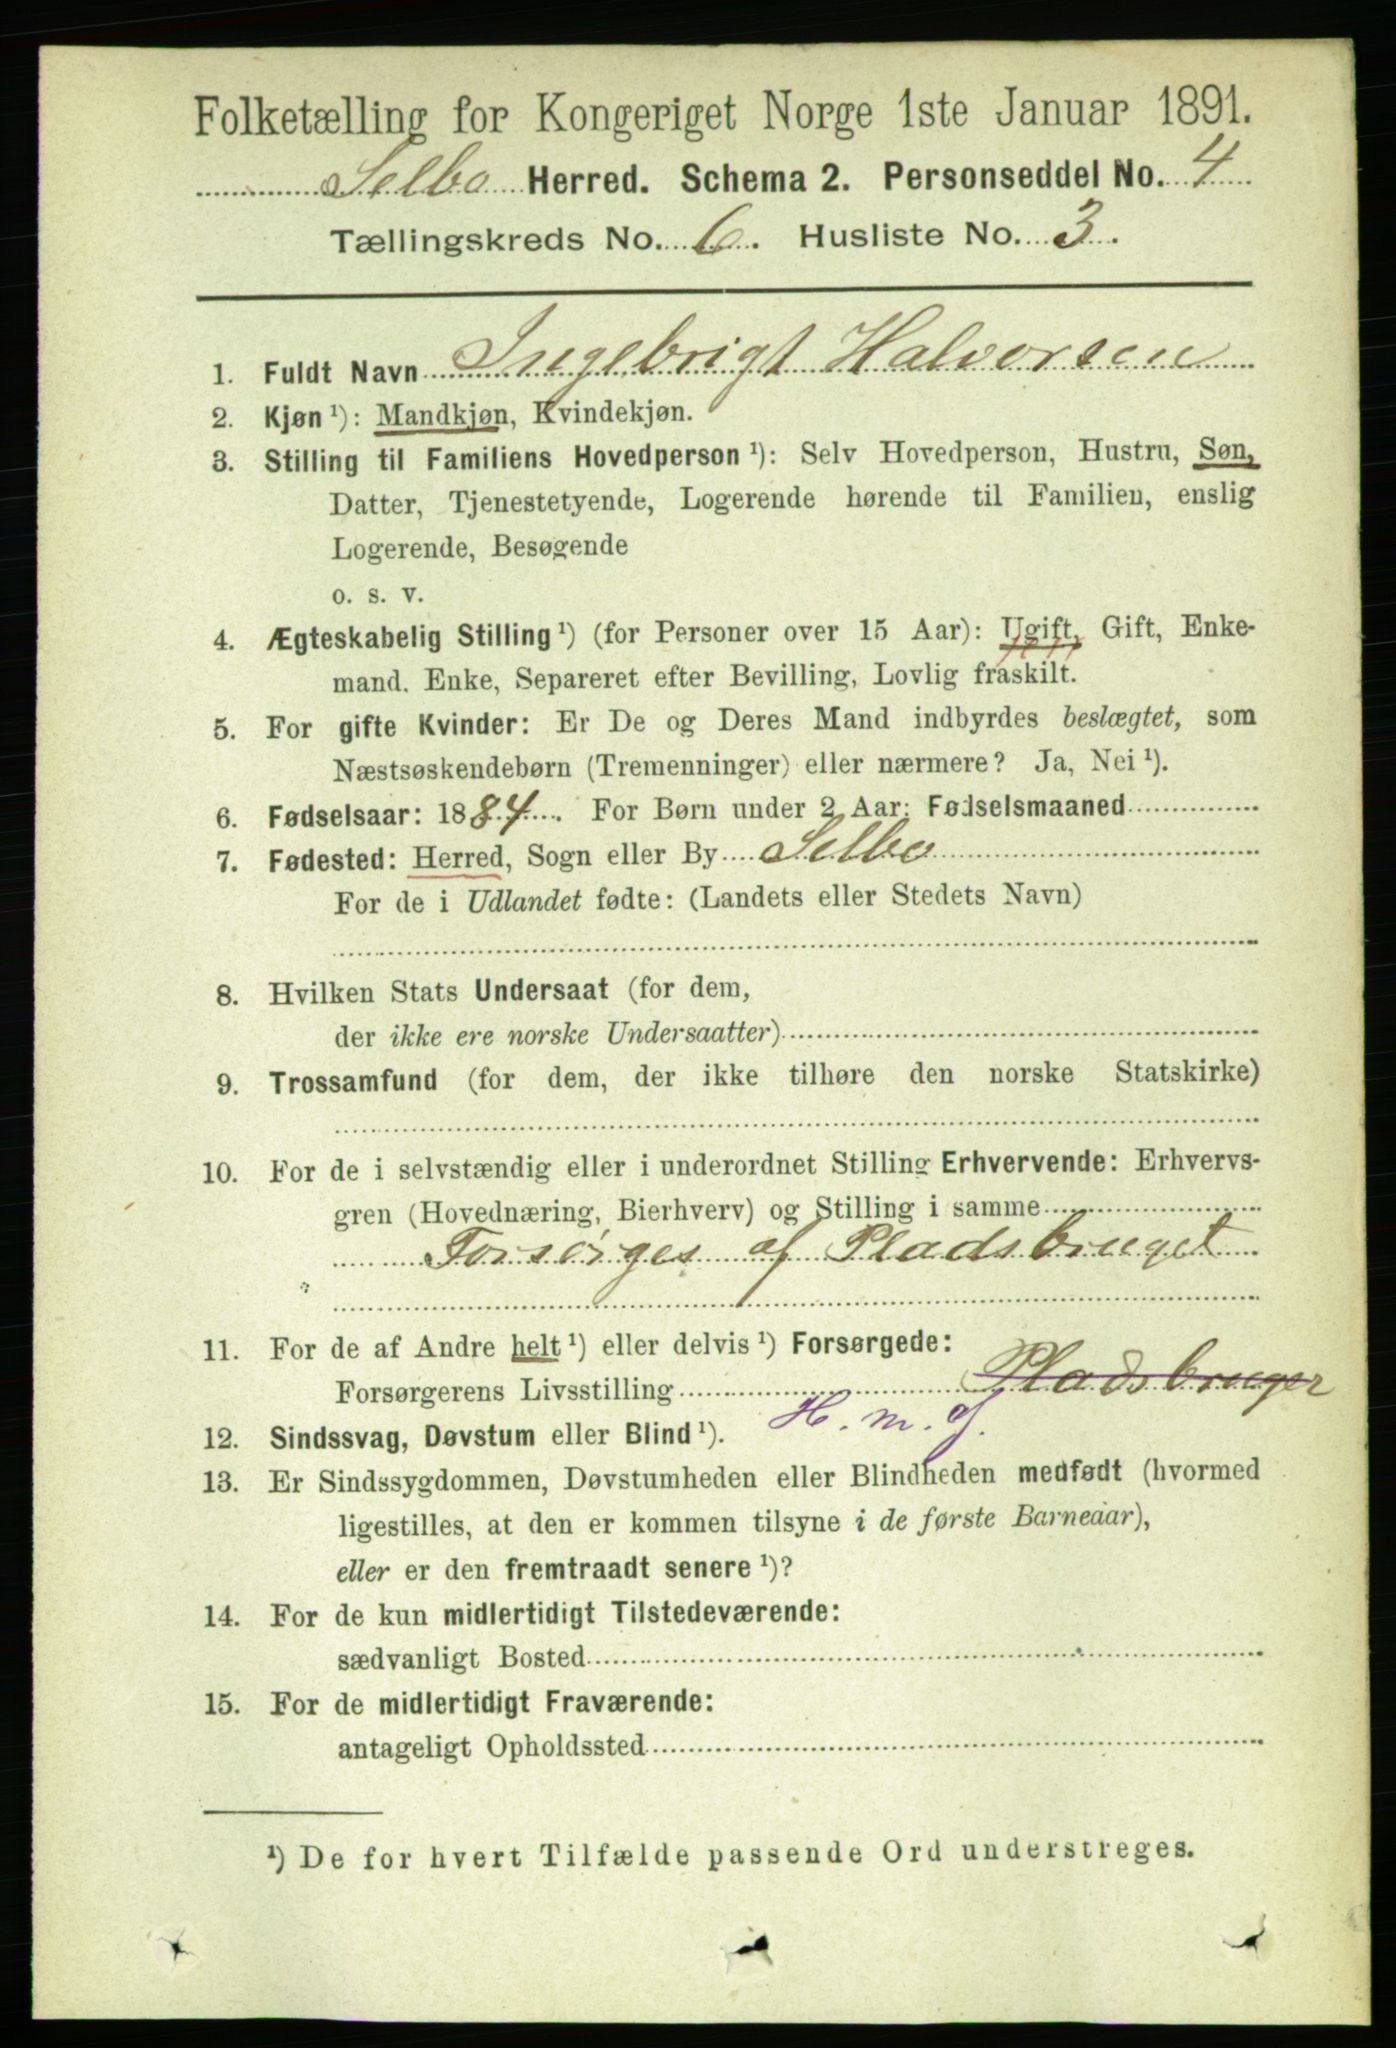 Folketælling for Kongeriget Norge 1ste Januar 1891.
Selbo Herred. Schema 2. Personseddel No. 4
Tællingskreds No. 6. Husliste No. 3.
1. Fuldt Navn Ingebrigt Halvorsen
2. Kjøn ¹): Mandkjøn, Kvindekjøn.
3. Stilling til Familiens Hovedperson ¹): Selv Hovedperson, Hustru, Søn,
Datter, Tjenestetyende, Logerende hørende til Familien, enslig
Logerende, Besøgende
o. s. v.
4. Ægteskabelig Stilling ¹) (for Personer over 15 Aar): Ugift, Gift, Enke-
mand, Enke, Separeret efter Bevilling, Lovlig fraskilt.
5. For gifte Kvinder: Er De og Deres Mand indbyrdes beslægtet, som
Næstsøskendebørn (Tremenninger) eller nærmere? Ja, Nei ¹).
6. Fødselsaar: 1884. For Børn under 2 Aar: Fødselsmaaned
7. Fødested: Herred, Sogn eller By Selbo
For de i Udlandet fødte: (Landets eller Stedets Navn)
8. Hvilken Stats Undersaat (for dem,
der ikke ere norske Undersaatter)
9. Trossamfund (for dem, der ikke tilhøre den norske Statskirke)
10. For de i selvstændig eller i underordnet Stilling Erhvervende: Erhvervs-
gren (Hovednæring, Bierhverv) og Stilling i samme
Forsørges af Pladsbruget
11. For de af Andre helt ¹) eller delvis ¹) Forsørgede:
Forsørgerens Livsstilling Pladsbruger
H. m. J.
12. Sindssvag, Døvstum eller Blind ¹).
13. Er Sindssygdommen, Døvstumheden eller Blindheden medfødt (hvormed
ligestilles, at den er kommen tilsyne i de første Barneaar),
eller er den fremtraadt senere ¹)?
14. For de kun midlertidigt Tilstedeværende:
sædvanligt Bosted
15. For de midlertidigt Fraværende:
antageligt Opholdssted
¹) De for hvert Tilfælde passende Ord understreges.